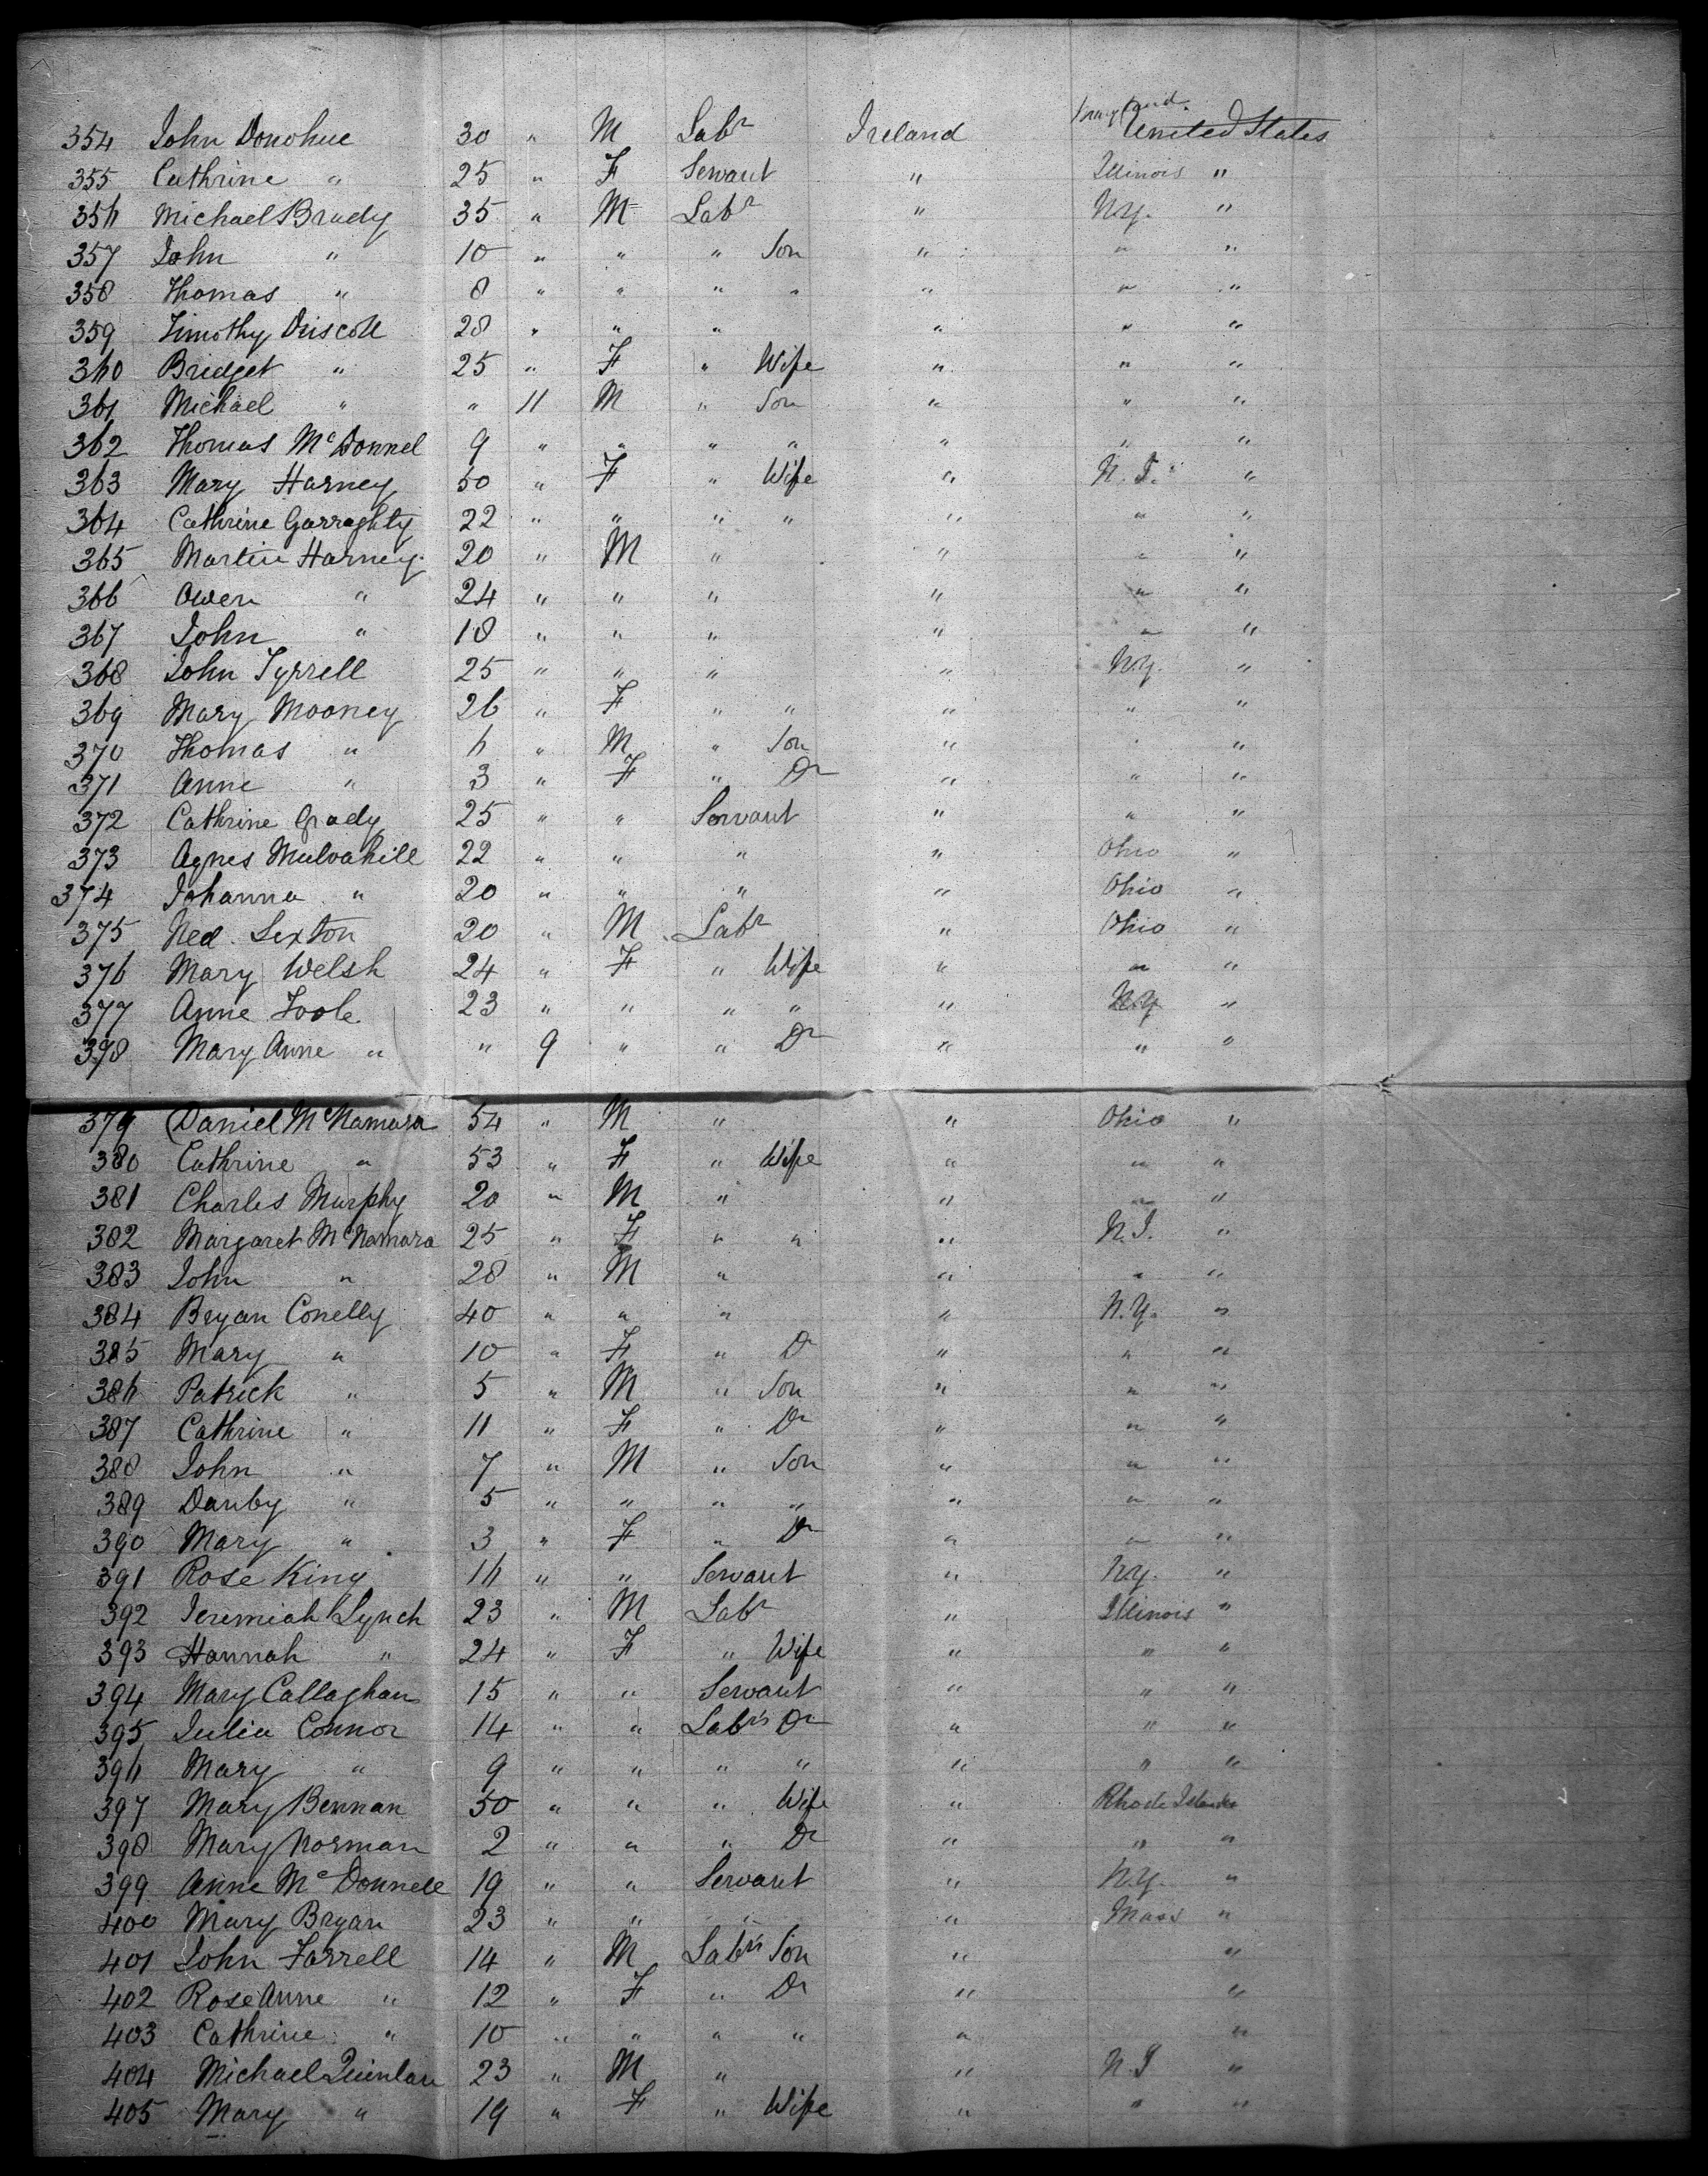 354 John Donohue 30 " M Labr Ireland United States
355 Cathrine " 25 " F Servant " Illinois "
356 Michael Brady 35 " M Labr " N.Y. "
357 John " 10 " " " Son " " "
358 Thomas " 8 " " " " " " "
359 Timothy Driscoll 28 " " " " " "
360 Bridget " 25 " F " Wife " " "
361 Michael " " 11 M " Son " " "
362 Thomas McDonnel 9 " " " " " " "
363 Mary Harney 50 " F " Wife " N.J. "
364 Cathrine Garraghty 22 " " " " " " "
365 Martin Harney 20 " M " " " "
366 Owen " 24 " " " " " "
367 John " 18 " " " " " "
368 John Tyrrell 25 " " " " N.Y. "
369 Mary Mooney 26 " F " " " " "
370 Thomas " 6 " M " Son " " "
371 Anne " 3 " F " Dr " " "
372 Cathrine Grady 25 " " Servant " " "
373 Agnes Mulvahill 22 " " " " Ohio "
374 Johanna " 20 " " " " Ohio "
375 Ned Sexton 20 " M Labr " Ohio "
376 Mary Welsh 24 " F " Wife " " "
377 Anne Toole 23 " " " " " N.Y. "
378 Mary Anne " " 9 " " Dr " " "
379 Daniel McNamara 54 " M " " Ohio "
380 Cathrine " 53 " F " Wife " " "
381 Charles Murphy 20 " M " " " "
382 Margaret McNamara 25 " F " " " N.J. "
383 John " 28 " M " " " "
384 Bryan Conelly 40 " " " " N.Y. "
385 Mary " 10 " F " Dr " " "
386 Patrick " 5 " M " Son " " "
387 Cathrine " 11 " F " Dr " " "
388 John " 7 " M " Son " " "
389 Danby " 5 " " " " " " "
390 Mary " 3 " F " Dr " " "
391 Rose King 16 " " Servant " N.Y. "
392 Jeremiah Lynch 23 " M Labr " Illinois "
393 Hannah " 24 " F " Wife " " "
394 Mary Callaghan 15 " " Servant " " "
395 Julia Connor 14 " " Labr's Dr " " "
396 Mary " 9 " " " " " " "
397 Mary Bennan 50 " " " Wife " Rhode Island "
398 Mary Norman 2 " " " Dr " " "
399 Anne McDonnell 19 " " Servant " N.Y. "
400 Mary Bryan 23 " " " " Mass "
401 John Farrell 14 " M Labr's Son " "
402 Rose Anne " 12 " F " Dr " "
403 Cathrine " 10 " " " " " "
404 Michael Quinlan 23 " M " " N.J "
405 Mary " 19 " F " Wife " " "